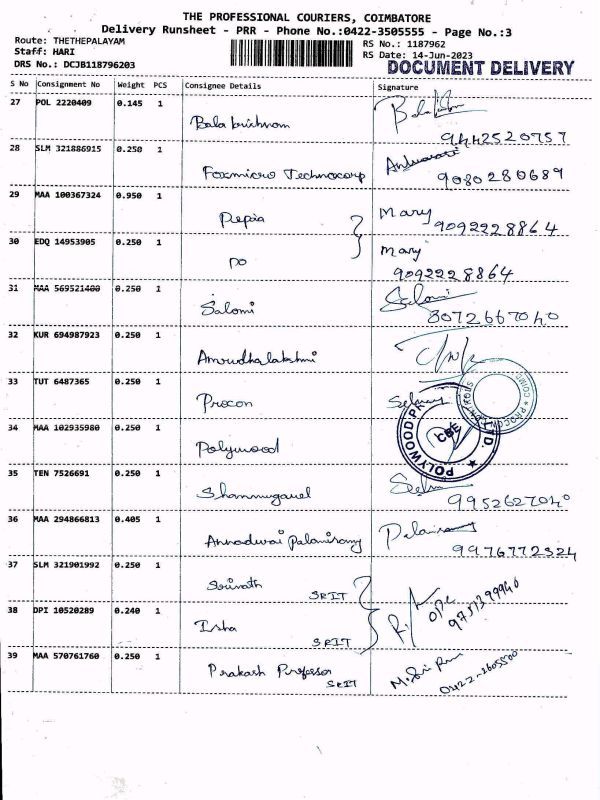 THE PROFESSIONAL COURIERS, COIMBATORE
Delivery Runsheet - PRR - Phone No.:0422-3505555 - Page No.:3
Route: THETHEPALAYAM
Staff: HARI
DRS No.: DCJB118796203
RS No.: 1187962
RS Date: 14-Jun-2023
DOCUMENT DELIVERY
S No Consignment No Weight PCS Consignee Details Signature
27 POL 2220409 0.145 1 Bala krishnan
9442520757
28 SLM 321886915 0.250 1 Foxmicro Technocorp
9080280689
29 MAA 100367324 0.950 1 Pepia Mary
9092228864
30 EDQ 14953905 0.250 1 DO Mary
9092228864
31 MAA 569521400 0.250 1 Salomi Salomi
8072667040
32 KUR 694987923 0.250 1 Amrudhalakshmi
33 TUT 6487365 0.250 1 Procon
34 MAA 102935980 0.250 1 Polywood
POLYWOOD CBE
35 TEN 7526691 0.250 1 Shanmugavel
9952627040
36 MAA 294866813 0.405 1 Annadurai Palanisamy Palanisamy
9976772324
37 SLM 321901992 0.250 1 Srinath SRIT
38 DPI 10520289 0.240 1 Isha SRIT
39 MAA 570761760 0.250 1 Prakash Professor SRIT
M. Sri Ram
0422-2605500